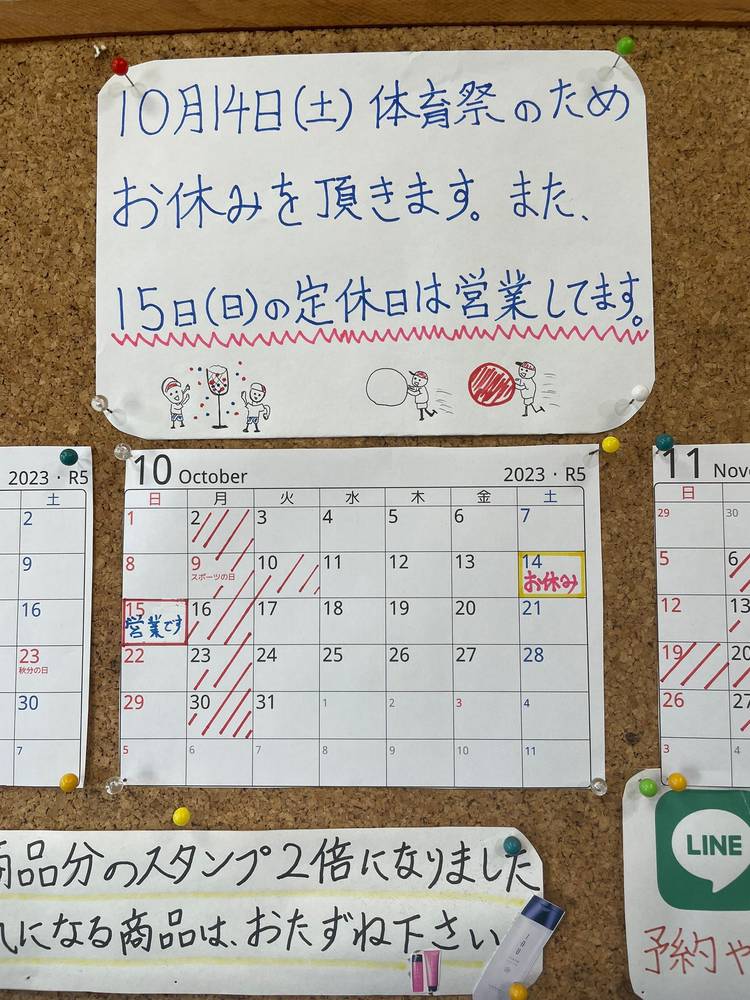 10月14日(土)体育祭のため
お休みを頂きます。また、
15日(日)の定休日は営業してます。
2023・R5
土
2
9
16
23
秋分の日
30
7
10 October 2023・R5
日 月 火 水 木 金 土
1 2 3 4 5 6 7
8 9 10 11 12 13 14
スポーツの日 お休み
15 16 17 18 19 20 21
営業です
22 23 24 25 26 27 28
29 30 31 1 2 3 4
5 6 7 8 9 10 11
11
日
29 30
5 6
12 13
19 20
26 27
3 4
商品分のスタンプ2倍になりました
になる商品は、おたずね下さい
LINE
予約や